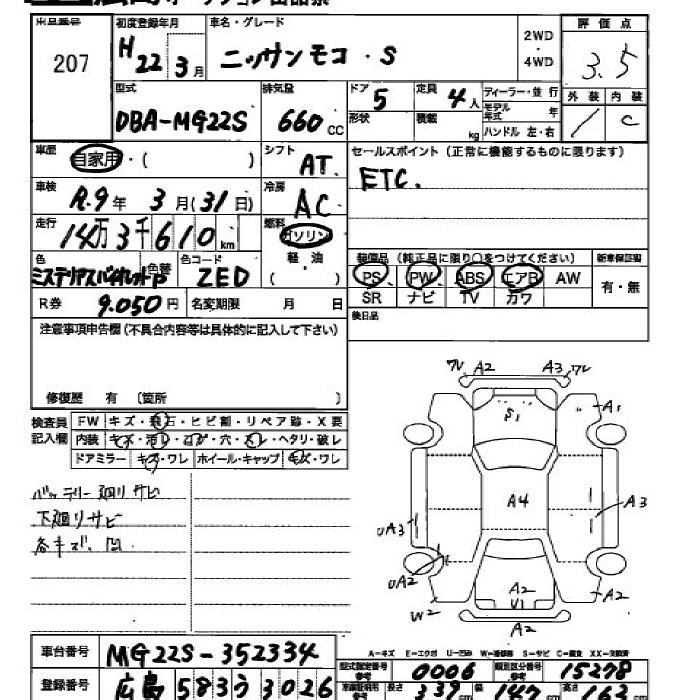 出品番号 207
初度登録年月 H 22年 3月
車名・グレード ニッサンモコ・S
2WD・4WD
評価点 3.5
外装 内装 C
型式 DBA-MG22S
排気量 660 CC
ドア 5
形状
定員 4人
積載 kg
ディーラー・並行
モデル年式 年
ハンドル 左・右
車歴 自家用・( )
シフト AT
セールスポイント(正常に機能するものに限ります)
ETC.
車検 R.9年 3月(31日)
冷房 AC
走行 14万3千610km
燃料 ガソリン 軽・油 ( )
色 色替 色コード ZED
装備品(純正品に限り○をつけてください)
PS PW ABS エアB AW
SR ナビ TV カワ
新車保証書 有・無
R券 9.050円
名変期限 月 日
後日品
注意事項申告欄(不具合内容等は具体的に記入して下さい)
修復歴 有 〔箇所 〕
検査員記入欄
FW キズ・飛石・ヒビ割・リペア跡・X要
内装 キズ・汚レ・コゲ・穴・スレ・ヘタリ・破レ
ドアミラー キズ・ワレ ホイール・キャップ キズ・ワレ
バッテリー廻りサビ
下廻りサビ
各キズ、凹
ワレ A2 A3 ワレ
S1 A1
A4
A3
UA3
UA2
W2
A2
V1
A2
A2
A-キズ E-エクボ U-凹ミ W-補修跡 S-サビ C-腐食 XX-交換済
車台番号 MG22S-352334
型式指定番号 0006
類別区分番号 15278
登録番号 広島 583 う 3026
長さ 339 cm 幅 147 cm 高さ